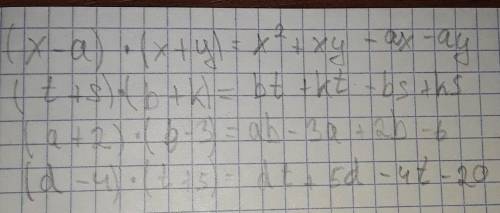 (x-a)·(x+y)=x²+xy-ax-ay
(t+s)·(b+k)=bt+kt+bs+ks
(a+2)·(b-3)=ab-3a+2b-6
(d-4)·(t+5)=dt+5d-4t-20